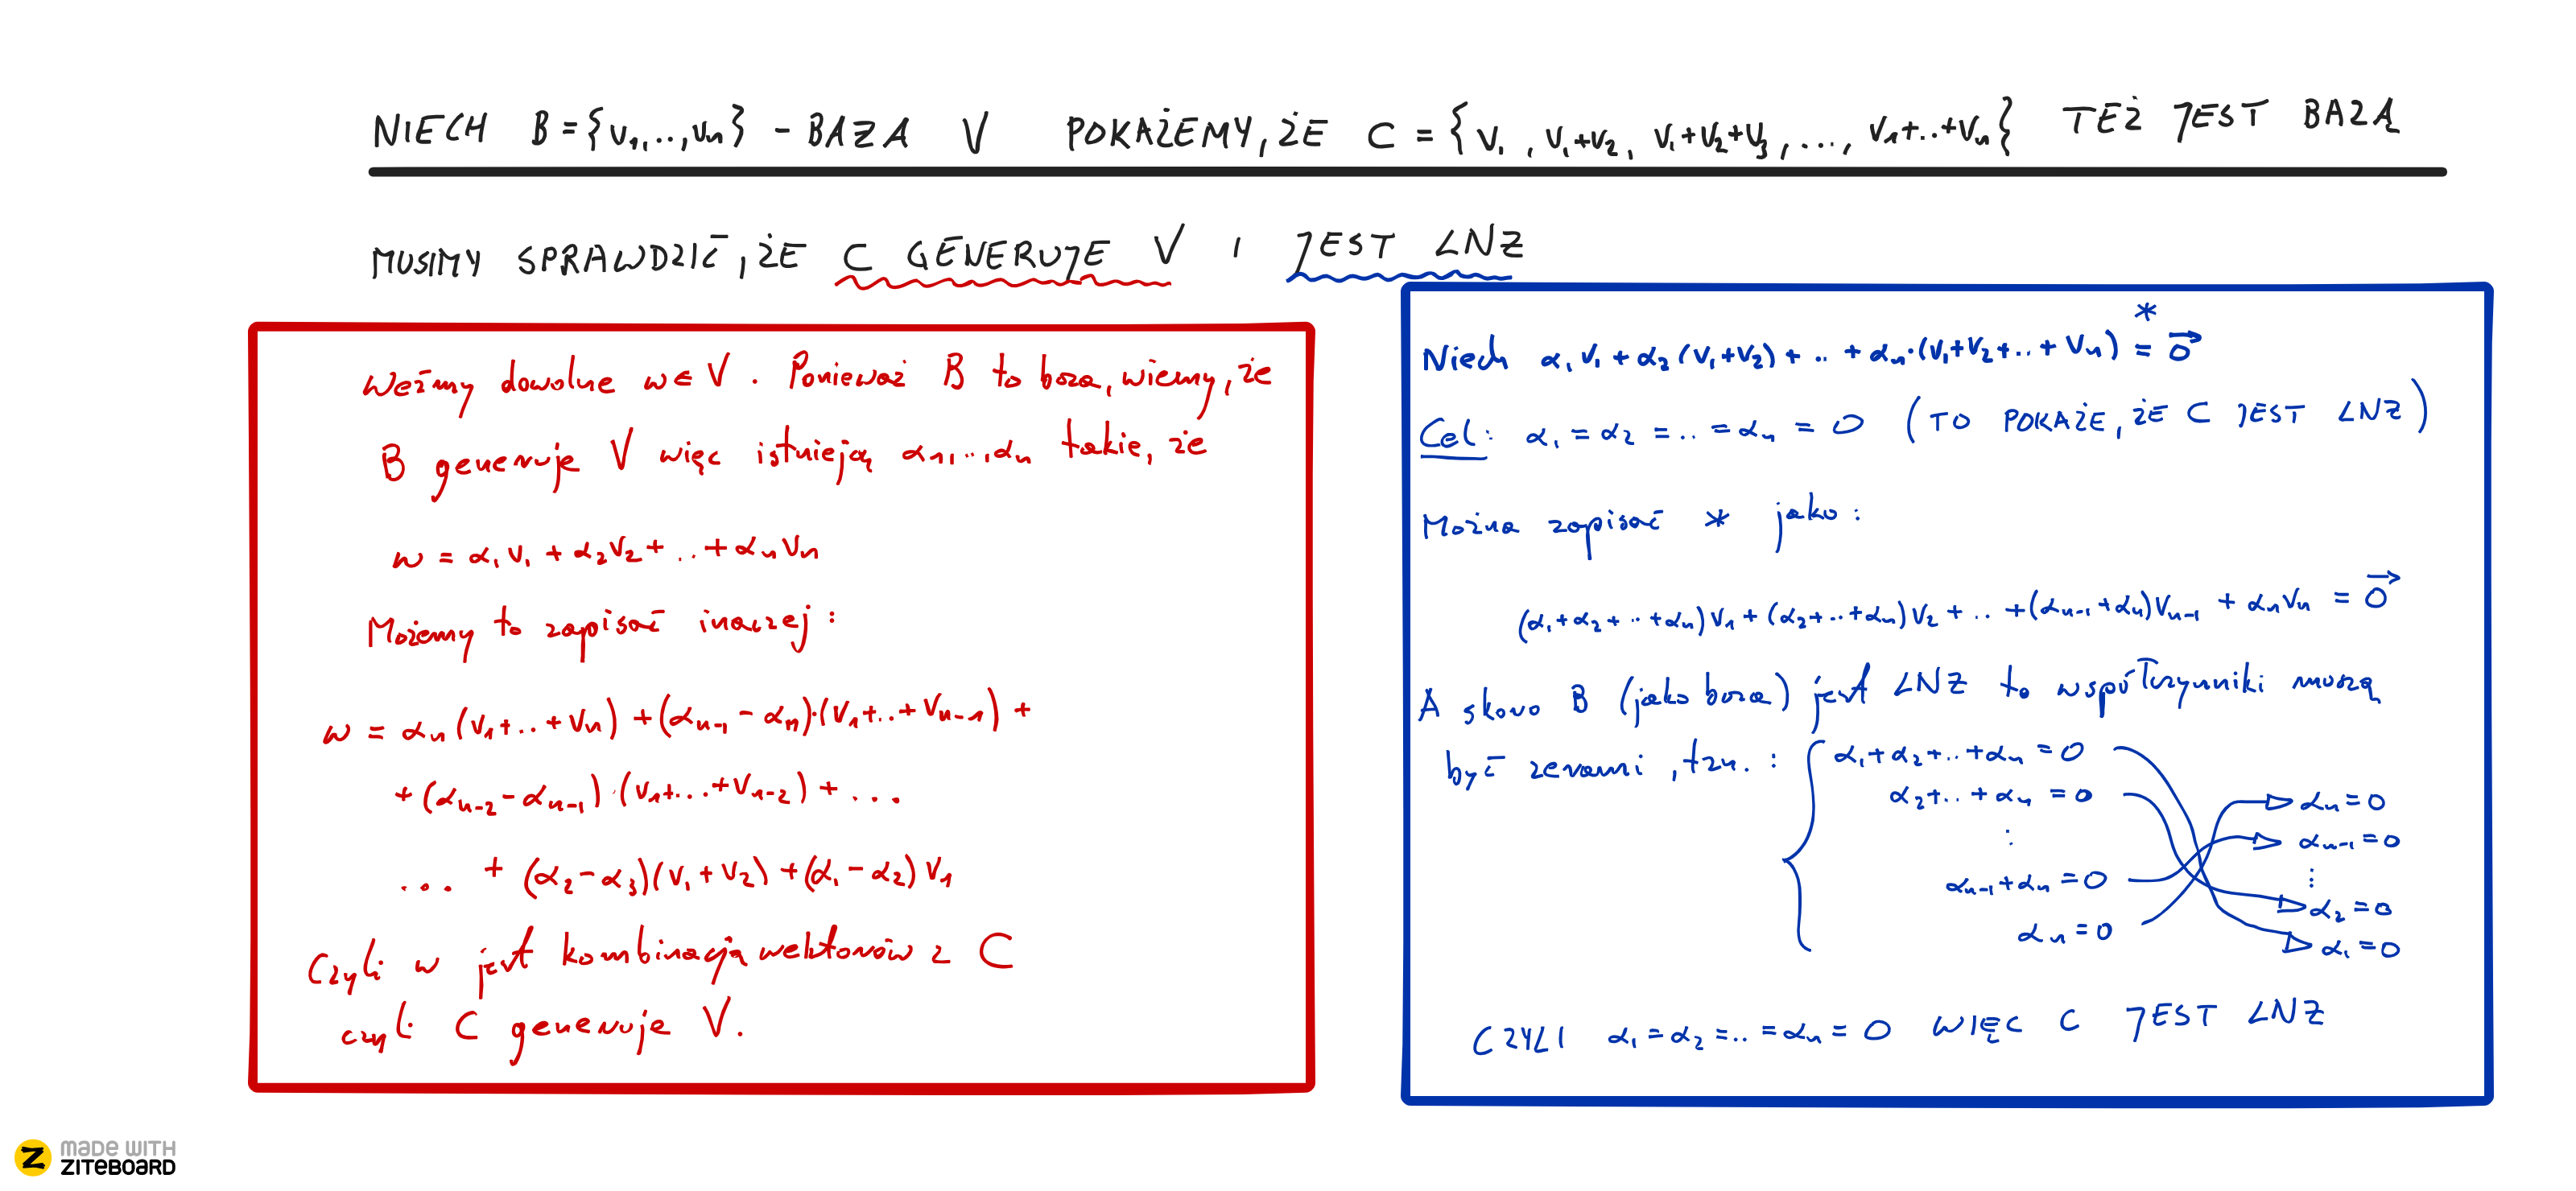 NIECH B = {v₁,..,vₙ} - BAZA V POKAŻEMY, ŻE C = {v₁, v₁+v₂, v₁+v₂+v₃, ..., v₁+..+vₙ} TEŻ JEST BAZĄ
MUSIMY SPRAWDZIĆ, ŻE C GENERUJE V I JEST LNZ
Weźmy dowolne w ∈ V. Ponieważ B to baza, wiemy, że
B generuje V więc istnieją α₁,..,αₙ takie, że
w = α₁v₁ + α₂v₂ + .. + αₙvₙ
Możemy to zapisać inaczej:
w = αₙ(v₁+..+vₙ) + (αₙ₋₁ - αₙ)·(v₁+..+vₙ₋₁) +
+ (αₙ₋₂ - αₙ₋₁)·(v₁+...+vₙ₋₂) + ...
... + (α₂ - α₃)(v₁ + v₂) + (α₁ - α₂) v₁
Czyli w jest kombinacją wektorów z C
czyli C generuje V.
Niech α₁v₁ + α₂(v₁+v₂) + .. + αₙ·(v₁+v₂+..+vₙ) =* 0⃗
Cel: α₁ = α₂ = .. = αₙ = 0 (TO POKAŻE, ŻE C JEST LNZ)
Można zapisać * jako:
(α₁+α₂+..+αₙ)v₁ + (α₂+..+αₙ)v₂ + .. + (αₙ₋₁+αₙ)vₙ₋₁ + αₙvₙ = 0⃗
A skoro B (jako baza) jest LNZ to współczynniki muszą
być zerami, tzn.: { α₁+α₂+..+αₙ = 0
α₂+..+αₙ = 0 → αₙ = 0
⋮ → αₙ₋₁ = 0
αₙ₋₁+αₙ = 0 ⋮ → α₂ = 0
αₙ = 0 → α₁ = 0
CZYLI α₁ = α₂ = .. = αₙ = 0 WIĘC C JEST LNZ
MADE WITH
ZITEBOARD